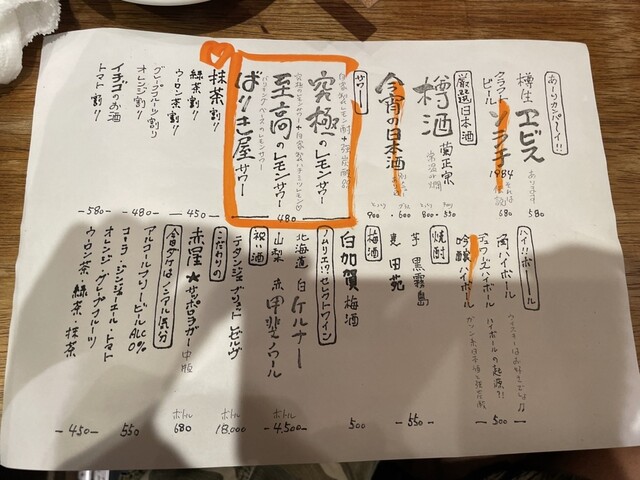 あーりカンパーイ!!
樽生ヱビス
あります
580
クラフト
ビール
ソラチ
1984
680
厳選日本酒
樽酒
菊正宗
常温or燗
800
550
今宵の日本酒
900
600
サワー
自家製レモン酎+強炭酸
究極のレモンサワー
究極のレモンサワー+自家製ハチミツレモン♡
至高のレモンサワー
ばりき屋サワー
480
抹茶割り
緑茶割り
ウーロン茶割り
450
グレープフルーツ割り
オレンジ割り
480
イチゴのお酒
トマト割り
580
ハイボール
角ハイボール
ウイスキーはお好きでしょ♪
デュワーズハイボール
ハイボールの起源?!
吟醸ハイボール
500
焼酎
芋 黒霧島
麦 田苑
550
梅酒
白加賀梅酒
500
ノムリエ!?セレクトワイン
北海道 白 ケルナー
山梨 赤 甲斐ノワール
ボトル
4,500
祝い酒
テタンジェ ブリュット レゼルヴ
ボトル
18,000
こだわりの
赤星★サッポロラガー中瓶
680
今日ダケはノンアル気分
アルコールフリービール ALC 0%
コーラ・ジンジャーエール・トマト
550
オレンジ・グレープフルーツ
ウーロン茶・緑茶・抹茶
450